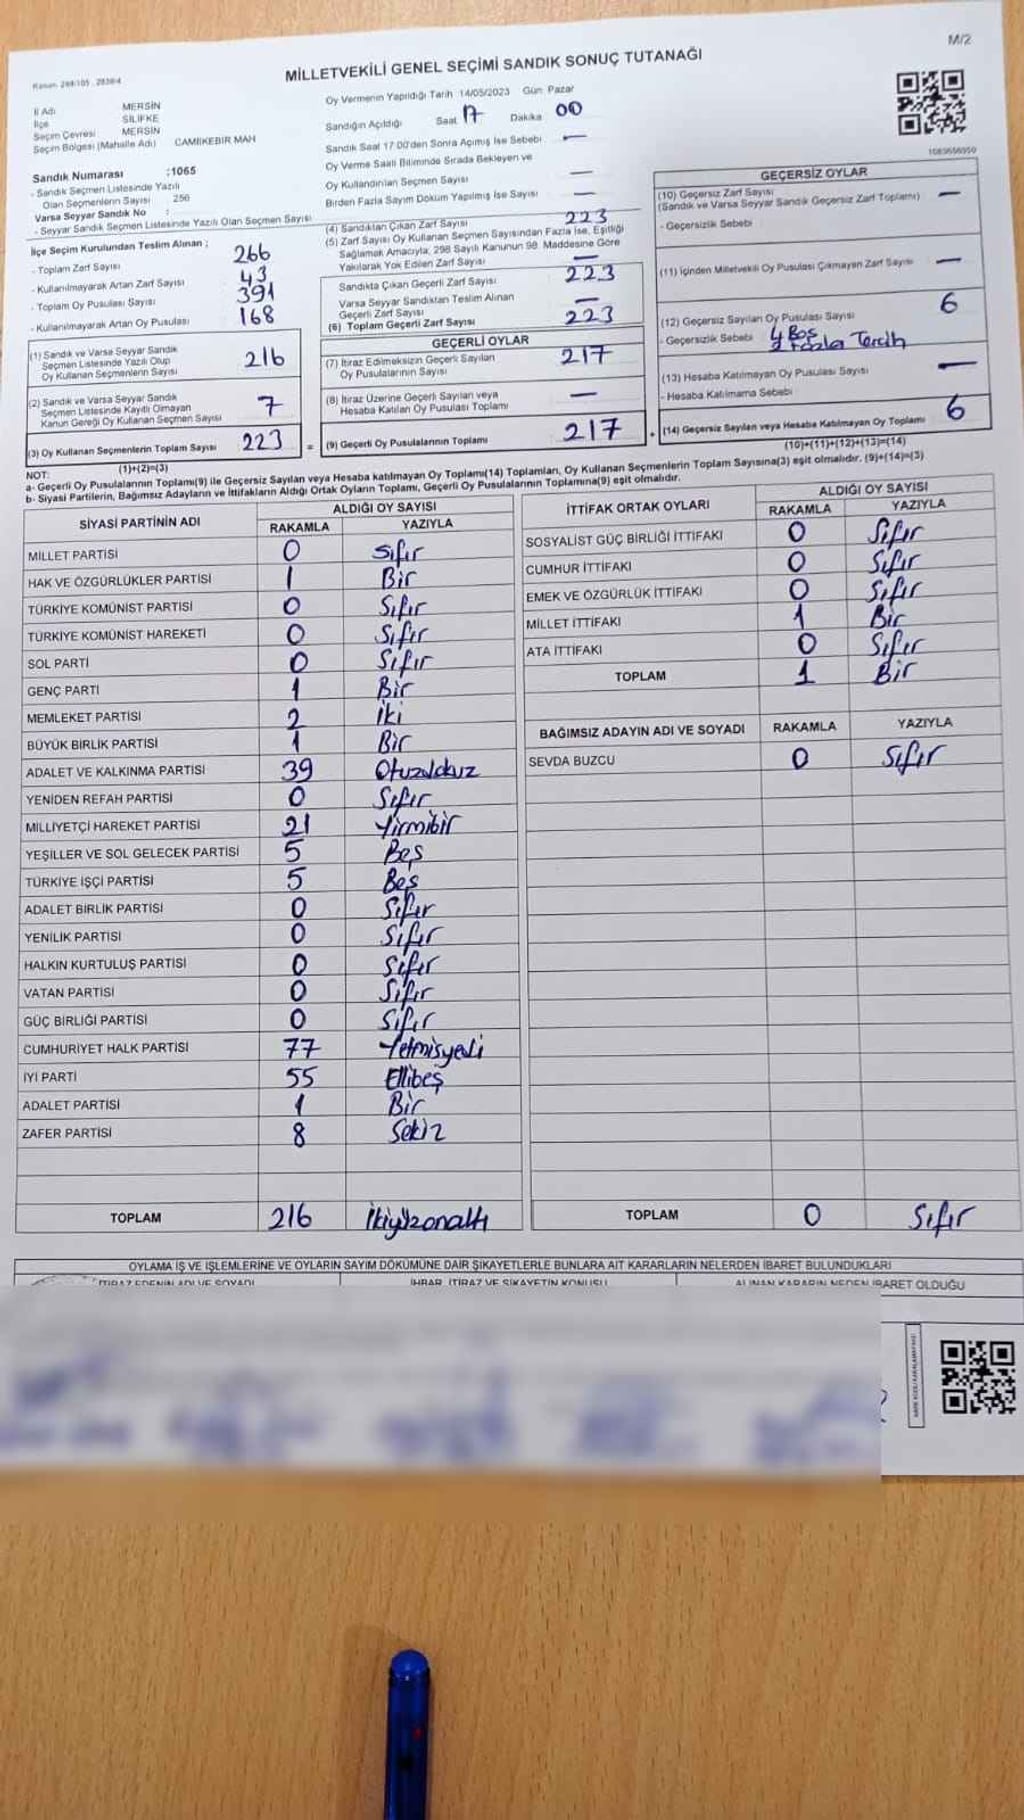 M/2
MİLLETVEKİLİ GENEL SEÇİMİ SANDIK SONUÇ TUTANAĞI
İl Adı MERSİN
İlçe SİLİFKE
Seçim Çevresi MERSİN
Seçim Bölgesi (Mahalle Adı) CAMİİKEBİR MAH
Sandık Numarası :1065
- Sandık Seçmen Listesinde Yazılı
Olan Seçmenlerin Sayısı 256
Varsa Seyyar Sandık No :
- Seyyar Sandık Seçmen Listesinde Yazılı Olan Seçmen Sayısı
İlçe Seçim Kurulundan Teslim Alınan ;
- Toplam Zarf Sayısı 266
- Kullanılmayarak Artan Zarf Sayısı 43
- Toplam Oy Pusulası Sayısı 391
- Kullanılmayarak Artan Oy Pusulası 168
(1) Sandık ve Varsa Seyyar Sandık
Seçmen Listesinde Yazılı Olup
Oy Kullanan Seçmenlerin Sayısı 216
(2) Sandık ve Varsa Seyyar Sandık
Seçmen Listesinde Kayıtlı Olmayan
Kanun Gereği Oy Kullanan Seçmen Sayısı 7
(3) Oy Kullanan Seçmenlerin Toplam Sayısı 223 =
(1)+(2)=(3)
Oy Vermenin Yapıldığı Tarih 14/05/2023 Gün Pazar
Sandığın Açıldığı Saat 17 Dakika 00
Sandık Saat 17:00'den Sonra Açımış İse Sebebi —
Oy Verme Saati Bitiminde Sırada Bekleyen ve
Oy Kullandırılan Seçmen Sayısı —
Birden Fazla Sayım Döküm Yapılmış İse Sayısı —
(4) Sandıktan Çıkan Zarf Sayısı 223
(5) Zarf Sayısı Oy Kullanan Seçmen Sayısından Fazla İse, Eşitliği
Sağlamak Amacıyla, 298 Sayılı Kanunun 98. Maddesine Göre
Yakılarak Yok Edilen Zarf Sayısı —
Sandıkta Çıkan Geçerli Zarf Sayısı 223
Varsa Seyyar Sandıktan Teslim Alınan
Geçerli Zarf Sayısı —
(6) Toplam Geçerli Zarf Sayısı 223
GEÇERLİ OYLAR
(7) İtiraz Edilmeksizin Geçerli Sayılan
Oy Pusulalarının Sayısı 217
(8) İtiraz Üzerine Geçerli Sayılan veya
Hesaba Katılan Oy Pusulası Toplamı —
(9) Geçerli Oy Pusulalarının Toplamı 217 +
1083656950
GEÇERSİZ OYLAR
(10) Geçersiz Zarf Sayısı —
(Sandık ve Varsa Seyyar Sandık Geçersiz Zarf Toplamı)
- Geçersizlik Sebebi
(11) İçinden Milletvekili Oy Pusulası Çıkmayan Zarf Sayısı —
(12) Geçersiz Sayılan Oy Pusulası Sayısı 6
- Geçersizlik Sebebi 4 Boş
2 Fazla Tercih
(13) Hesaba Katılmayan Oy Pusulası Sayısı —
- Hesaba Katılmama Sebebi
(14) Geçersiz Sayılan veya Hesaba Katılmayan Oy Toplamı 6
(10)+(11)+(12)+(13)=(14)
NOT:
a- Geçerli Oy Pusulalarının Toplamı(9) ile Geçersiz Sayılan veya Hesaba katılmayan Oy Toplamı(14) Toplamları, Oy Kullanan Seçmenlerin Toplam Sayısına(3) eşit olmalıdır. (9)+(14)=(3)
b- Siyasi Partilerin, Bağımsız Adayların ve İttifakların Aldığı Ortak Oyların Toplamı, Geçerli Oy Pusulalarının Toplamına(9) eşit olmalıdır.
SİYASİ PARTİNİN ADI ALDIĞI OY SAYISI
RAKAMLA YAZIYLA
MİLLET PARTİSİ 0 Sıfır
HAK VE ÖZGÜRLÜKLER PARTİSİ 1 Bir
TÜRKİYE KOMÜNİST PARTİSİ 0 Sıfır
TÜRKİYE KOMÜNİST HAREKETİ 0 Sıfır
SOL PARTİ 0 Sıfır
GENÇ PARTİ 1 Bir
MEMLEKET PARTİSİ 2 İki
BÜYÜK BİRLİK PARTİSİ 1 Bir
ADALET VE KALKINMA PARTİSİ 39 Otuzdokuz
YENİDEN REFAH PARTİSİ 0 Sıfır
MİLLİYETÇİ HAREKET PARTİSİ 21 Yirmibir
YEŞİLLER VE SOL GELECEK PARTİSİ 5 Beş
TÜRKİYE İŞÇİ PARTİSİ 5 Beş
ADALET BİRLİK PARTİSİ 0 Sıfır
YENİLİK PARTİSİ 0 Sıfır
HALKIN KURTULUŞ PARTİSİ 0 Sıfır
VATAN PARTİSİ 0 Sıfır
GÜÇ BİRLİĞİ PARTİSİ 0 Sıfır
CUMHURİYET HALK PARTİSİ 77 Yetmişyedi
İYİ PARTİ 55 Ellibeş
ADALET PARTİSİ 1 Bir
ZAFER PARTİSİ 8 Sekiz
TOPLAM 216 İkiyüzonaltı
İTTİFAK ORTAK OYLARI ALDIĞI OY SAYISI
RAKAMLA YAZIYLA
SOSYALİST GÜÇ BİRLİĞİ İTTİFAKI 0 Sıfır
CUMHUR İTTİFAKI 0 Sıfır
EMEK VE ÖZGÜRLÜK İTTİFAKI 0 Sıfır
MİLLET İTTİFAKI 1 Bir
ATA İTTİFAKI 0 Sıfır
TOPLAM 1 Bir
BAĞIMSIZ ADAYIN ADI VE SOYADI RAKAMLA YAZIYLA
SEVDA BUZCU 0 Sıfır
TOPLAM 0 Sıfır
OYLAMA İŞ VE İŞLEMLERİNE VE OYLARIN SAYIM DÖKÜMÜNE DAİR ŞİKAYETLERLE BUNLARA AİT KARARLARIN NELERDEN İBARET BULUNDUKLARI
İTİRAZ EDENİN ADI VE SOYADI İHBAR, İTİRAZ VE ŞİKAYETİN KONUSU ALINAN KARARIN NEDEN İBARET OLDUĞU